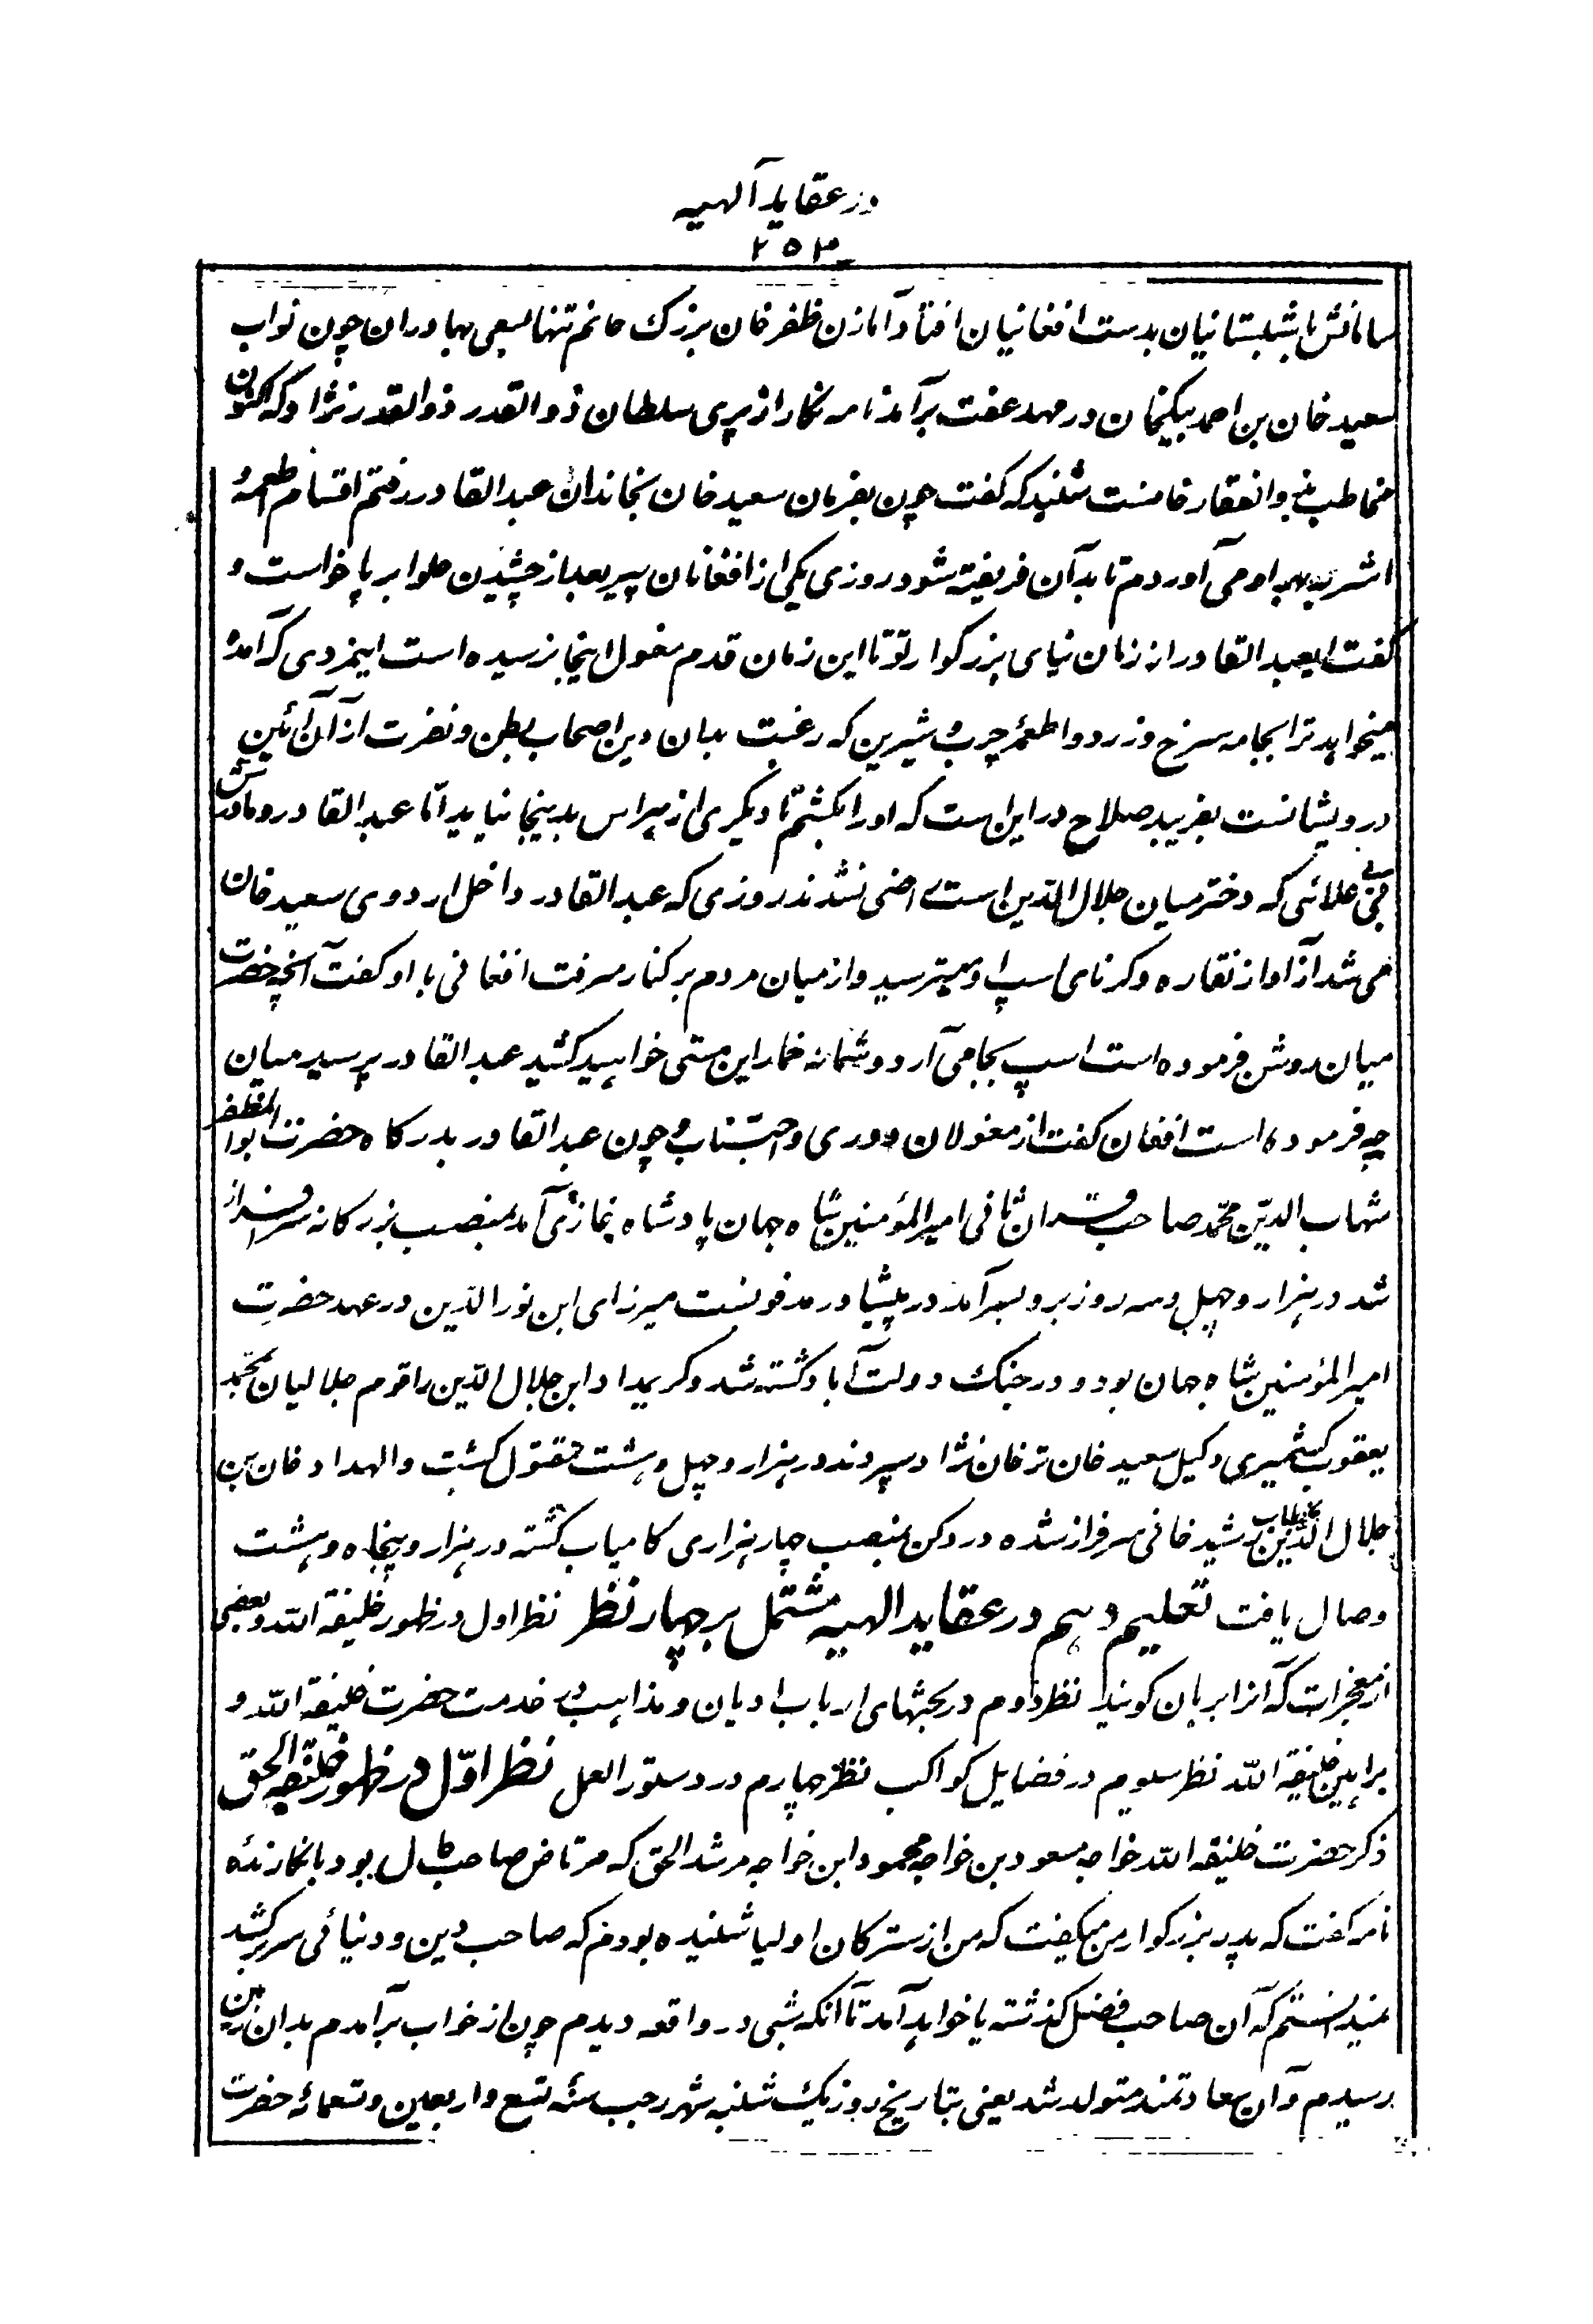 در عقاید آلهیه
۲۵۳
سامانش با شبستانیان بدست افغانیان افتاد آما زن ظفر خان بزرک خانم تنها بسعی بهادران چون نواب
سعید خان بن احمد بیکخان در مهد عفت برآمد نامه نکار از پری سلطان ذوالقدر ذوالقدر نژاد که اکنون
مخاطب بذوالفقار خانست شنید که گفت چون بفرمان سعید خان بخاندان عبدالقادر رفتم اقسام اطعمهٔ و
اشربه بهر او می آوردم تا بدآن فریفته شود روزی یکی از افغانان پیر بعد از چشیدن حلوا بر پا خواست و
گفت ایعبدالقادر از زمان نیای بزرکوار تو تا این زمان قدم مغول اینجا نرسیده است اینمردی که آمدهٔ
میخواهد ترا بجامه سرخ و زرد و اطعمهٔ چرب و شیرین که رغبت بدان دین اصحاب بطن و نفرت از آن آئین
درویشانست بفریبد صلاح در این است که اورا بکشیم تا دیکری از هراس بدینجا نیاید امّا عبدالقادر و مادرش
بی بی علائی که دختر میان جلال الدین است راضی نشدند روزی که عبدالقادر داخل اردوی سعید خان
می شد از آواز نقاره و کرنای اسپ او میترسید و از میان مردم بر کنار میرفت افغانی با او کفت آنچه حضرت
میان روشن فرموده است اسپ بجا می آرد و شمانه خمار این مستی خواهید کشید عبدالقادر پرسید میان
چه فرموده است افغان کفت از مغولان دوری و اجتناب و چون عبدالقادر بدرکاه حضرت ابوالمظفر
شهاب الدین محمد صاحب قران ثانی امیر المؤمنین شاه جهان پادشاه غازی آمد بمنصب بزرکانه سرافراز
شد در هزار و چهل و سه روز برو بسر آمد در پیشاور مدفونست میرزای ابن نورالدین در عهد حضرتِ
امیر المؤمنین شاه جهان بود و در جنک دولت آباد کشته شد و کریمداد ابن جلال الدین را قوم جلالیان بمحمد
یعقوب کشمیری وکیل سعید خان ترخان نژاد سپردند در هزار و چهل و هشت مقتول کشت و الهداد خان بن
جلال الدین بخطاب رشید خانی سرفراز شده در دکن بمنصب چار هزاری کامیاب کشته در هزار و پنجاه و هشت
وصال یافت تعلیم دهم در عقاید الهیه مشتمل بر چهار نظر نظر اول در ظهور خلیفة الله و بعضی
از معجزات که آنرا برهان کویند نظر دوم در بحثهای ارباب ادیان و مذاهب در خدمت حضرت خلیفة الله و
براهین خلیفة الله نظر سیوم در فضایل کواکب نظر چهارم در دستور العمل نظر اوّل در ظهور خلیفة الحق
ذکر حضرت خلیفة الله خواجه مسعود بن خواجه محمود ابن خواجه مرشد الحق که مرتاض صاحب حال بود با نکارندهٔ
نامه کفت که پدر بزرکوار من میکفت که من از سترکان اولیا شنیده بودم که صاحب دین و دنیائی سر بر کشد
نمیدانستم که آن صاحب فضل کذشته یا خواهد آمد تا آنکه شبی در واقعه دیدم چون از خواب برآمدم بدان زمین
رسیدم و آن سعادتمند متولد شد یعنی بتاریخ روز یک شنبه شهر رجب سنه تسع و اربعین و تسعمائه حضرت